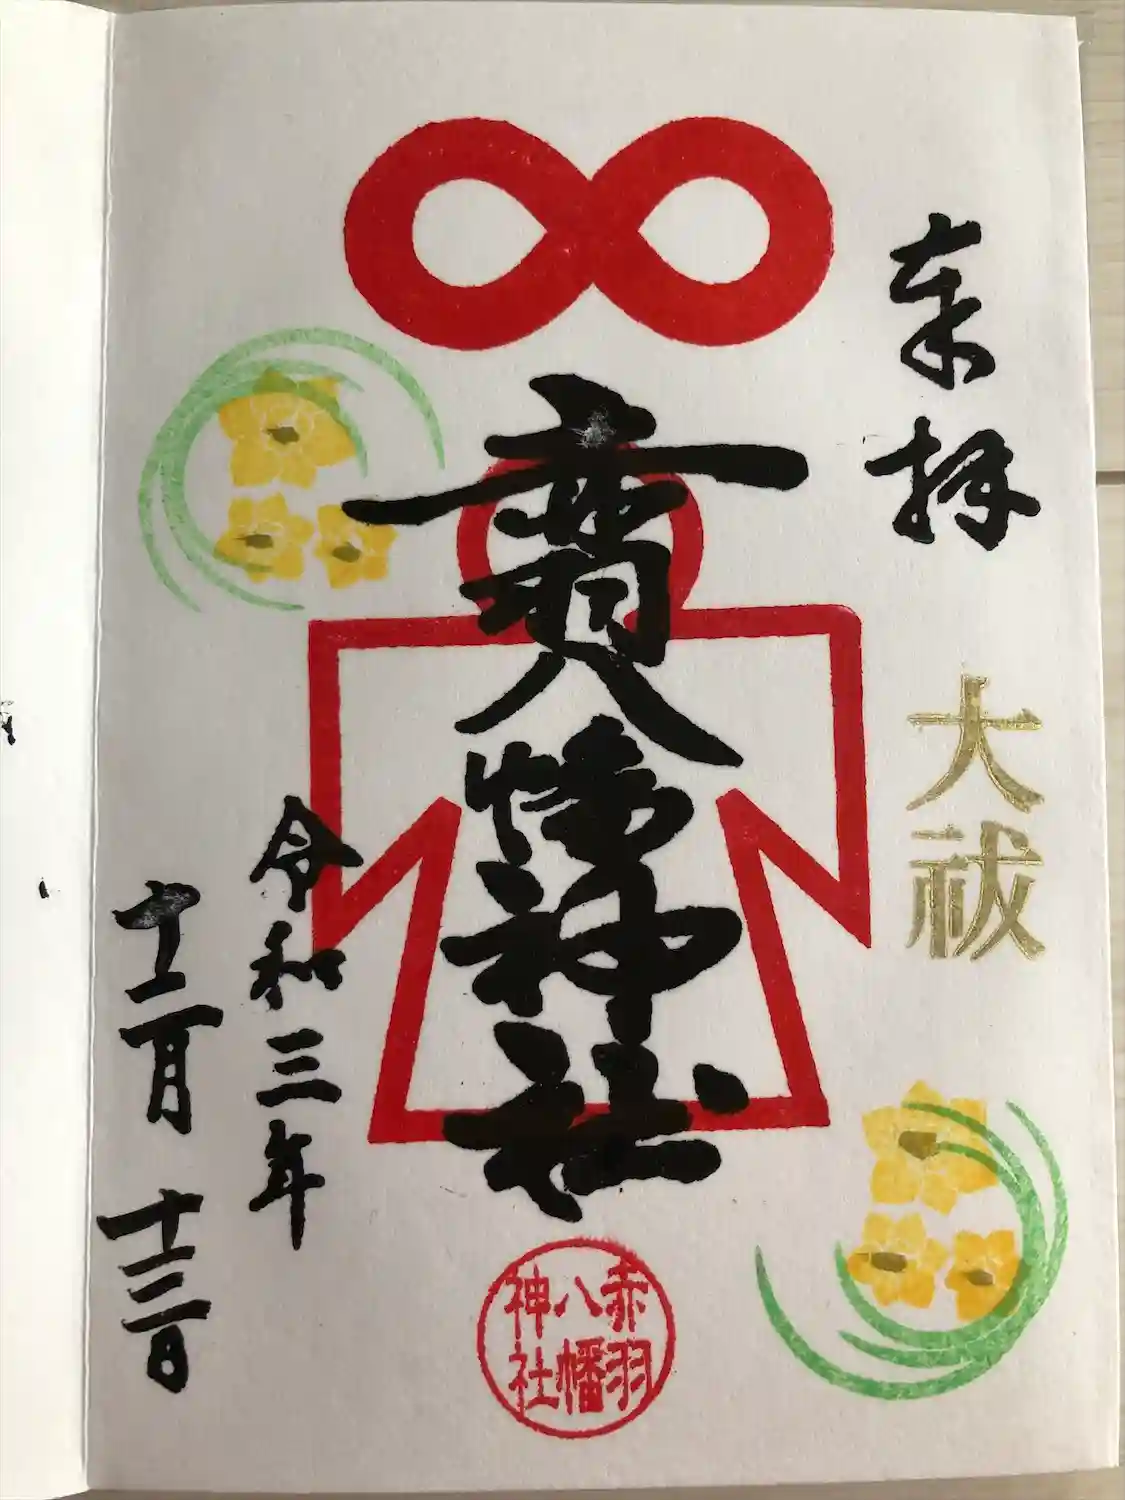 奉拝
大祓
赤羽八幡神社
令和三年
十二月十二日
赤羽
八幡
神社